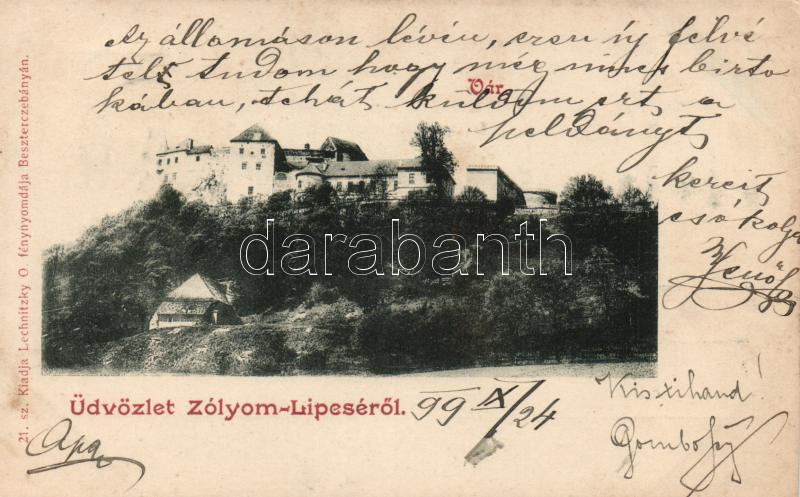 Az állomáson lévén, ezen új felvé
telt tudom hogy még nincs birto
kában, tehát küldöm ezt a
példányt
Vár.
kezeit
csókolja
Jenő
darabanth
21. sz. Kiadja Lechnitzky O. fénynyomdája Beszterczebányán.
Üdvözlet Zólyom-Lipcséről.
99 IX/24
Kisztihand!
Apa